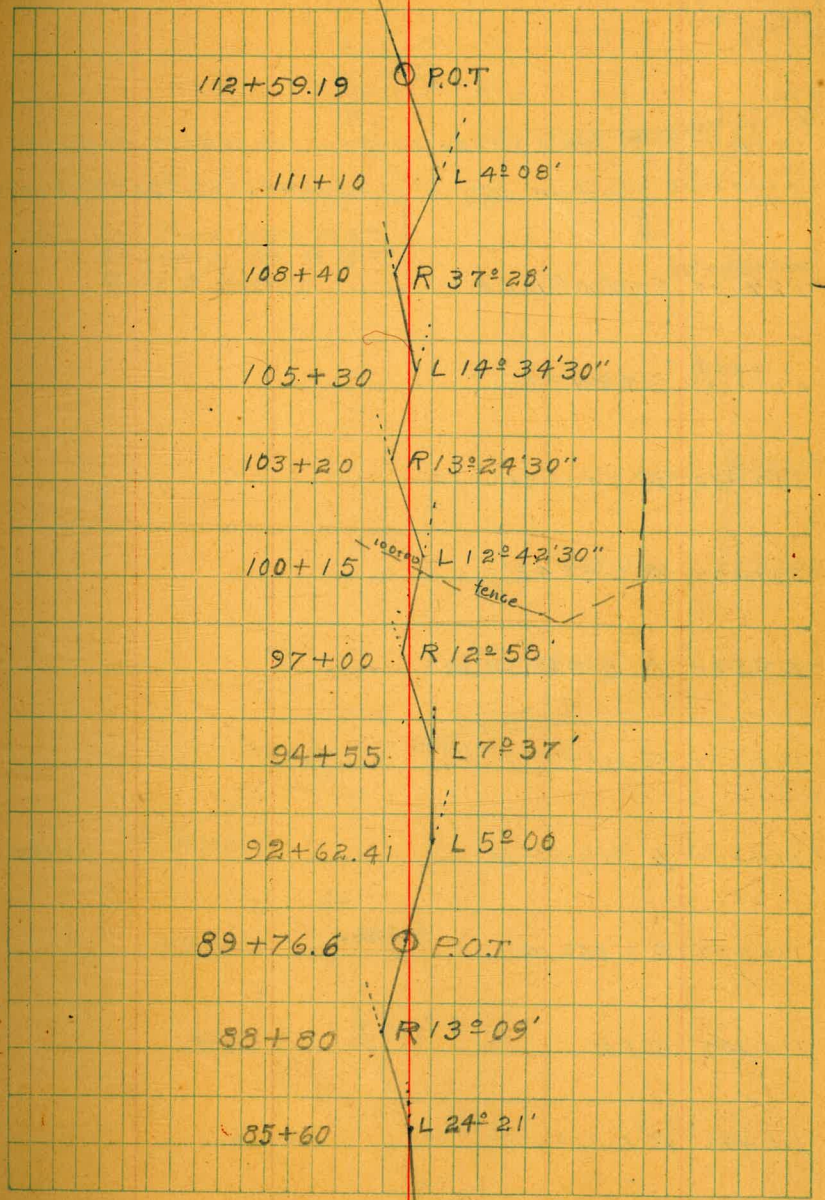 112+59.19 P.O.T
111+10 L 4º 08'
108+40 R 37º 28'
105+30 L 14º 34' 30"
103+20 R 13º 24' 30"
100+15 100+00 L 12º 42' 30"
fence
97+00 R 12º 58'
94+55 L 7º 37'
92+62.41 L 5º 00
89+76.6 P.O.T
88+80 R 13º 09'
85+60 L 24º 21'